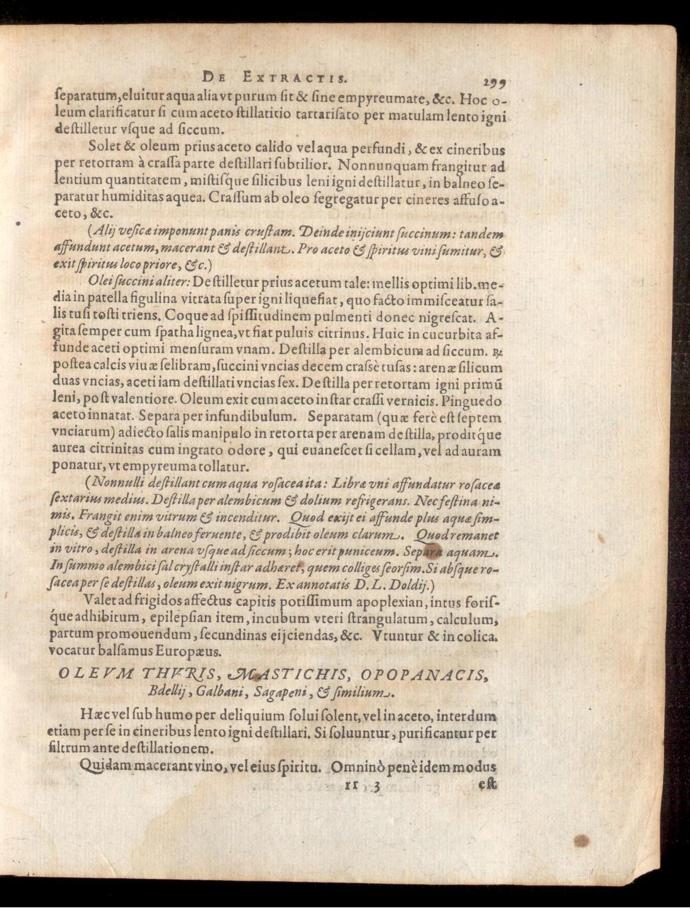 DE EXTRACTIS. 299
ſeparatum, eluitur aqua alia vt purum ſit & ſine empyreumate, &c. Hoc o-
leum clarificatur ſi cum aceto ſtillatitio tartariſato per matulam lento igni
deſtilletur vſque ad ſiccum.
Solet & oleum prius aceto calido vel aqua perfundi, & ex cineribus
per retortam à craſſa parte deſtillari ſubtilior. Nonnunquam frangitur ad
lentium quantitatem, miſtiſque ſilicibus leni igni deſtillatur, in balneo ſe-
paratur humiditas aquea. Craſſum ab oleo ſegregatur per cineres affuſo a-
ceto, &c.
(Alij veſicæ imponunt panis cruſtam. Deinde inijciunt ſuccinum: tandem
affundunt acetum, macerant & deſtillant. Pro aceto & ſpiritus vini ſumitur, &
exit ſpiritus loco priore, &c.)
Olei ſuccini aliter: Deſtilletur prius acetum tale: mellis optimi lib. me-
dia in patella figulina vitrata ſuper igni liquefiat, quo facto immiſceatur ſa-
lis tuſi toſti triens. Coque ad ſpiſſitudinem pulmenti donec nigreſcat. A-
gita ſemper cum ſpatha lignea, vt fiat puluis citrinus. Huic in cucurbita af-
funde aceti optimi menſuram vnam. Deſtilla per alembicum ad ſiccum. ℞
poſtea calcis viuæ ſelibram, ſuccini vncias decem craſsè tuſas: arenæ ſilicum
duas vncias, aceti iam deſtillati vncias ſex. Deſtilla per retortam igni primũ
leni, poſt valentiore. Oleum exit cum aceto inſtar craſſi vernicis. Pinguedo
aceto innatat. Separa per infundibulum. Separatam (quæ ferè eſt ſeptem
vnciarum) adiecto ſalis manipulo in retorta per arenam deſtilla, proditque
aurea citrinitas cum ingrato odore, qui euaneſcet ſi cellam, vel ad auram
ponatur, vt empyreuma tollatur.
(Nonnulli deſtillant cum aqua roſacea ita: Libræ vni affundatur roſaceæ
ſextarius medius. Deſtilla per alembicum & dolium refrigerans. Nec feſtina ni-
mis. Frangit enim vitrum & incenditur. Quod exijt ei affunde plus aquæ ſim-
plicis, & deſtilla in balneo feruente, & prodibit oleum clarum. Quod remanet
in vitro, deſtilla in arena vſque ad ſiccum; hoc erit puniceum. Separa aquam.
In ſummo alembici ſal cryſtalli inſtar adhæret, quem colliges ſeorſim. Si abſque ro-
ſacea per ſe deſtillas, oleum exit nigrum. Ex annotatis D. L. Doldij.)
Valet ad frigidos affectus capitis potiſſimum apoplexian, intus foriſ-
que adhibitum, epilepſian item, incubum vteri ſtrangulatum, calculum,
partum promouendum, ſecundinas eijciendas, &c. Vtuntur & in colica.
vocatur balſamus Europæus.
OLEVM THVRIS, MASTICHIS, OPOPANACIS,
Bdellij, Galbani, Sagapeni, & ſimilium.
Hæc vel ſub humo per deliquium ſolui ſolent, vel in aceto, interdum
etiam per ſe in cineribus lento igni deſtillari. Si ſoluuntur, purificantur per
filtrum ante deſtillationem.
Quidam macerant vino, vel eius ſpiritu. Omninò penè idem modus
rr 3 eſt